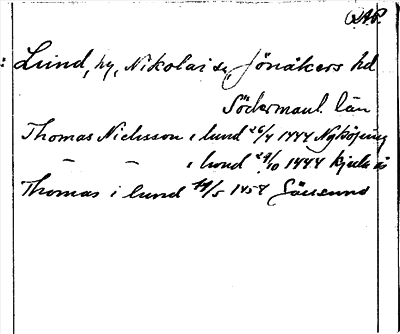 D.A.P.
Lund, by, Nikolai sn, Jönåkers hd
Södermanl. län
Thomas Nielsson i lund 26/4 1444 Nyköping
— — i lund 29/10 1444
Thomas i lund 14/5 1454